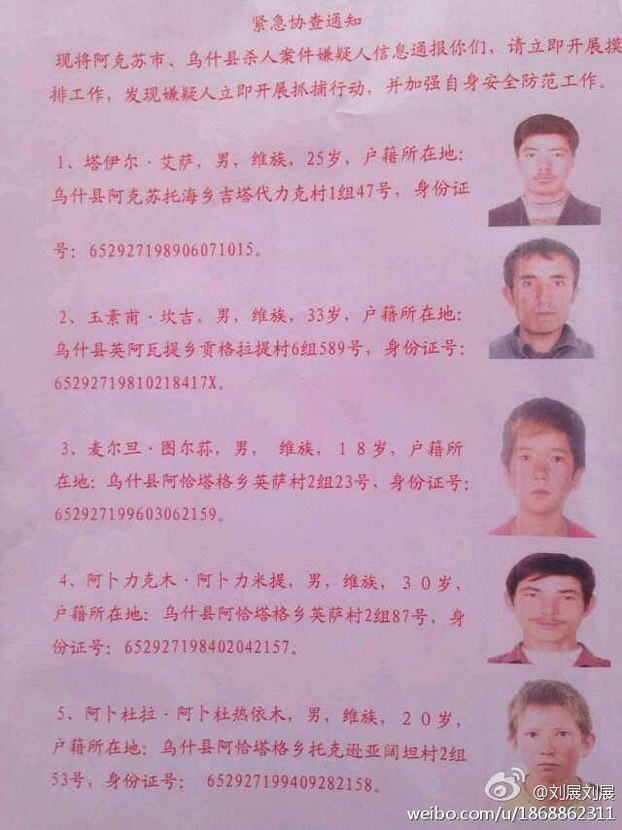 紧急协查通知
现将阿克苏市、乌什县杀人案件嫌疑人信息通报你们，请立即开展摸
排工作，发现嫌疑人立即开展抓捕行动，并加强自身安全防范工作。
1、塔伊尔·艾萨，男，维族，25岁，户籍所在地：
乌什县阿克苏托海乡吉塔代力克村1组47号，身份证
号：652927198906071015。
2、玉素甫·坎吉，男，维族，33岁，户籍所在地：
乌什县英阿瓦提乡贡格拉提村6组589号，身份证号：
65292719810218417X。
3、麦尔旦·图尔荪，男， 维族，18岁，户籍所
在地：乌什县阿恰塔格乡英萨村2组23号，身份证号：
652927199603062159。
4、阿卜力克木·阿卜力米提，男，维族，30岁，
户籍所在地：乌什县阿恰塔格乡英萨村2组87号，身
份证号：652927198402042157。
5、阿卜杜拉·阿卜杜热依木，男，维族，20岁，
户籍所在地：乌什县阿恰塔格乡托克逊亚阔坦村2组
53号，身份证号： 652927199409282158。
@刘展刘展
weibo.com/u/1868862311